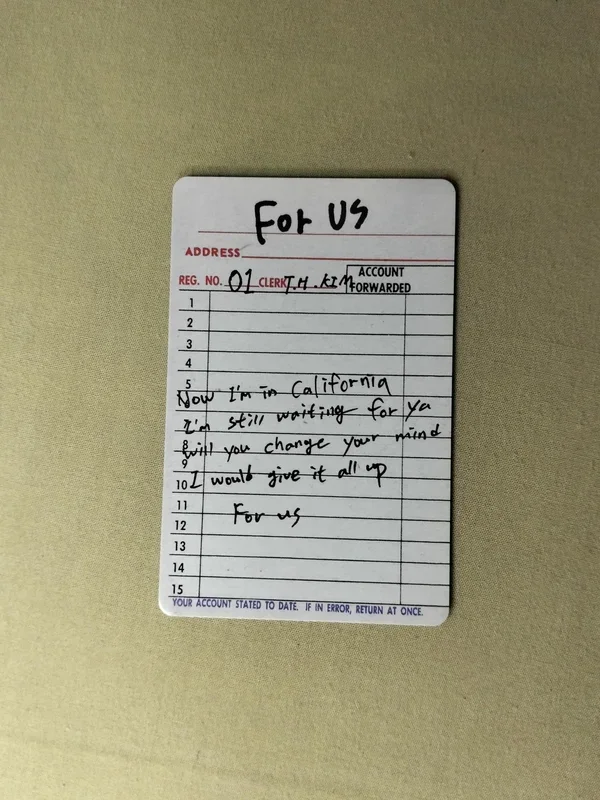 For Us
ADDRESS
REG. NO. 01 CLERK T.H. KIM ACCOUNT FORWARDED
1
2
3
4
5
Now I'm in California
I'm still waiting for ya
8
will you change your mind
9
10 I would give it all up
11
For us
12
13
14
15
YOUR ACCOUNT STATED TO DATE. IF IN ERROR, RETURN AT ONCE.